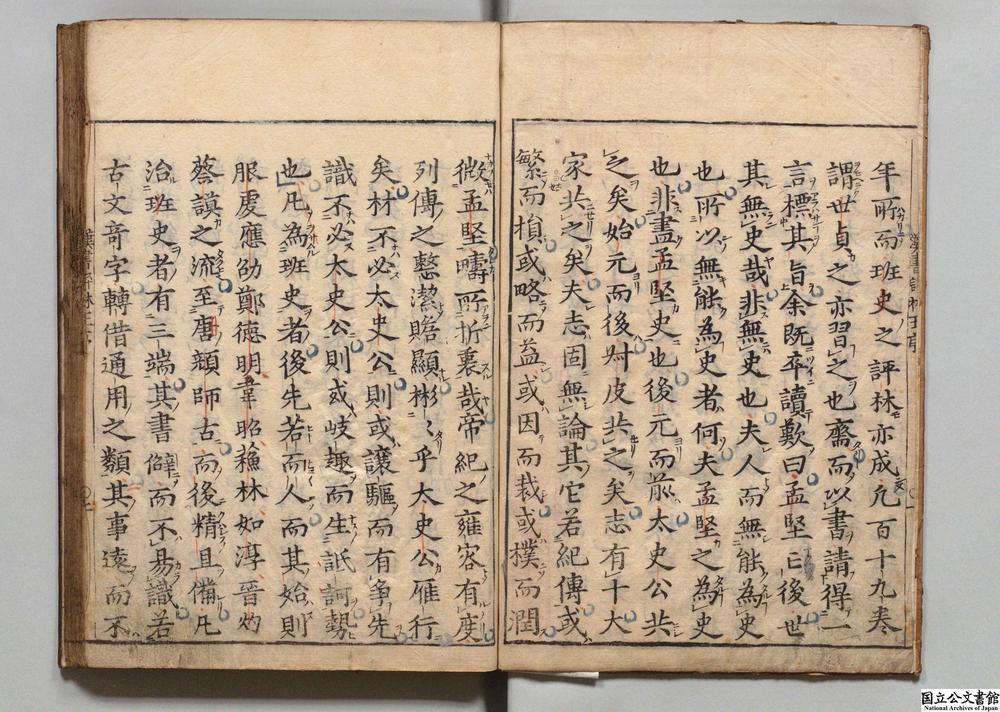 年所而班史之評林亦成凡百十九卷
謂世貞之亦習之也齋而以書請得一
言標其旨余既卒讀歎曰孟堅亡後世
其無史哉非無史也夫人而無能為史
也所以無能為史者何夫孟堅之為史
也非盡孟堅史也後元而前太史公共
之矣始元而後叔皮共之矣志有十大
家共之矣夫志固無論其它若紀傳或
繁而損或略而益或因而裁或樸而潤
微孟堅疇所折裏哉帝紀之雍容有度
列傳之整潔贍顯彬〻乎大史公雁行
矣材不必太史公則或讓驅而有爭先
識不必太史公則或岐趣而生詆訶勢
也凡為班史者後先若而人而其始則
服虔應劭鄭德明韋昭蘓林如淳晉灼
蔡謨之流至唐顔師古而後精且備凡
治班史者有三端其書僻而不易識若
古文奇字轉借通用之類其事遠而不
国立公文書館
National Archives of Japan